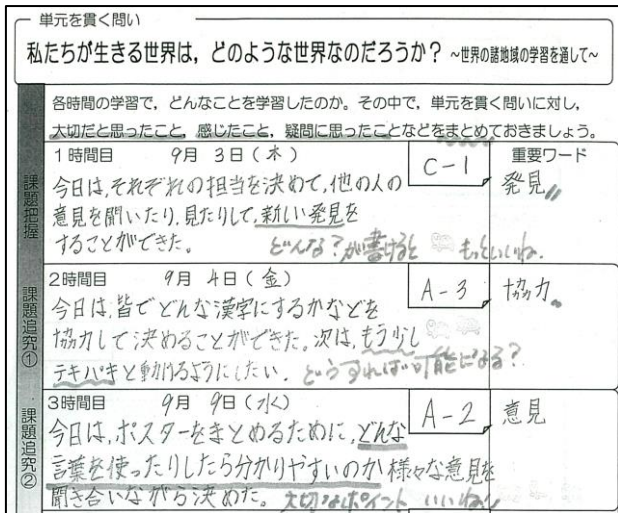 単元を貫く問い
私たちが生きる世界は，どのような世界なのだろうか？ ～世界の諸地域の学習を通して～
各時間の学習で，どんなことを学習したのか。その中で，単元を貫く問いに対し，
大切だと思ったこと，感じたこと，疑問に思ったことなどをまとめておきましょう。
課題把握
1時間目 9月 3日（木）
C-1
重要ワード
今日は，それぞれの担当を決めて，他の人の
意見を聞いたり，見たりして，新しい発見を
することができた。
発見
どんな？が書けると もっといいね。
課題追究①
2時間目 9月 4日（金）
A-3
協力
今日は，皆でどんな漢字にするかなどを
協力して決めることができた。次は，もう少し
テキパキと動けるようにしたい。
どうすれば可能になる？
課題追究②
3時間目 9月 9日（水）
A-2
意見
今日は，ポスターをまとめるために，どんな
言葉を使ったりしたら分かりやすいのか 様々な意見を
聞き合いながら決めた。
大切なポイント いいね！